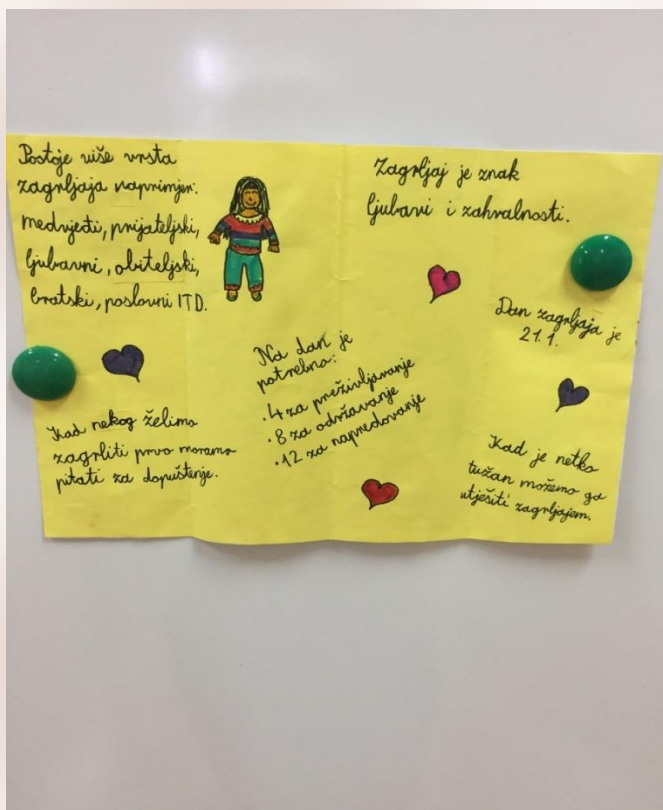 Postoje više vrsta
zagrljaja naprimjer:
medvjeđi, prijateljski,
ljubavni, obiteljski,
bratski, poslovni ITD.
Kad nekog želimo
zagrliti prvo moramo
pitati za dopuštenje.
Na dan je
potrebno:
·4 za preživljavanje
·8 za održavanje
·12 za napredovanje
Zagrljaj je znak
ljubavi i zahvalnosti.
Dan zagrljaja je
21.1.
Kad je netko
tužan možemo ga
utješiti zagrljajem.